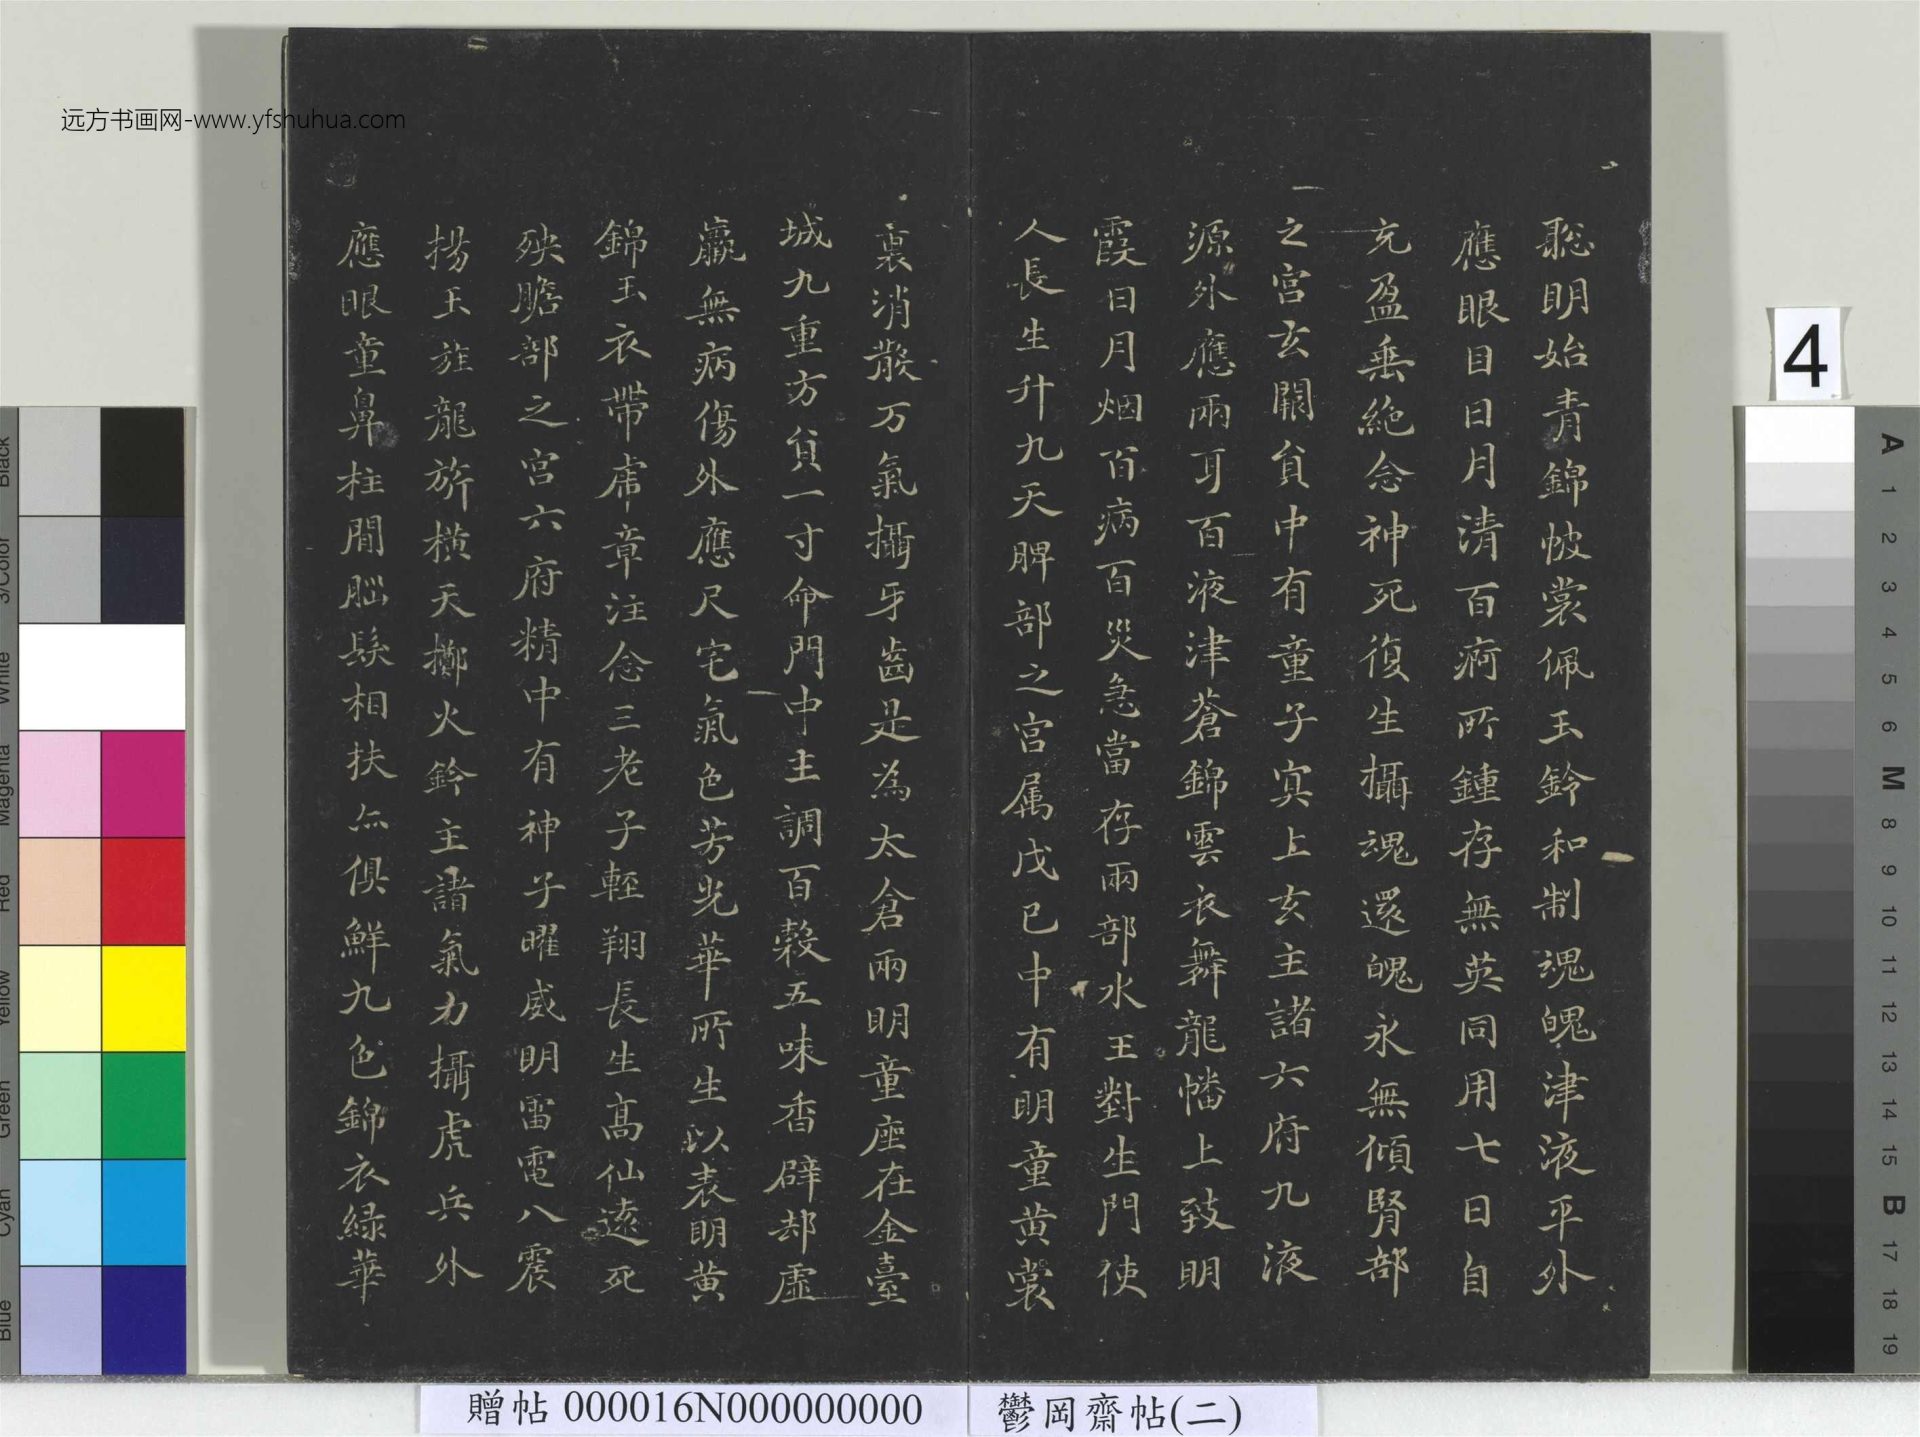 聡明始青錦帔裳佩玉鈴和制魂魄津液平外
應眼目日月清百痾所鍾存無英同用七日自
充盈垂絶念神死復生攝魂還魄永無傾腎部
之宮玄闕貟中有童子冥上玄主諸六府九液
源外應兩耳百液津蒼錦雲衣舞龍幡上致明
霞日月烟百病百災急當存兩部水王對生門使
人長生升九天脾部之宮属戊己中有明童黄裳
裏消散万氣攝牙齒是為太倉兩明童座在金臺
城九重方貟一寸命門中主調百穀五味香辟却虚
羸無病傷外應尺宅氣色芳光華所生以表明黄
錦玉衣帶席章注念三老子輕翔長生高仙遠死
殃膽部之宮六府精中有神子曜威明雷電八震
揚玉旌龍旂橫天擲火鈴主諸氣力攝虎兵外
應眼童鼻柱間腦髮相扶亦俱鮮九色錦衣緑華
远方书画网-www.yfshuhua.com
4
贈帖 000016N000000000
鬱岡齋帖(二)
Black
3/Color
White
Magenta
Red
Yellow
Green
Cyan
Blue
A
1
2
3
4
5
6
M
8
9
10
11
12
13
14
15
B
17
18
19